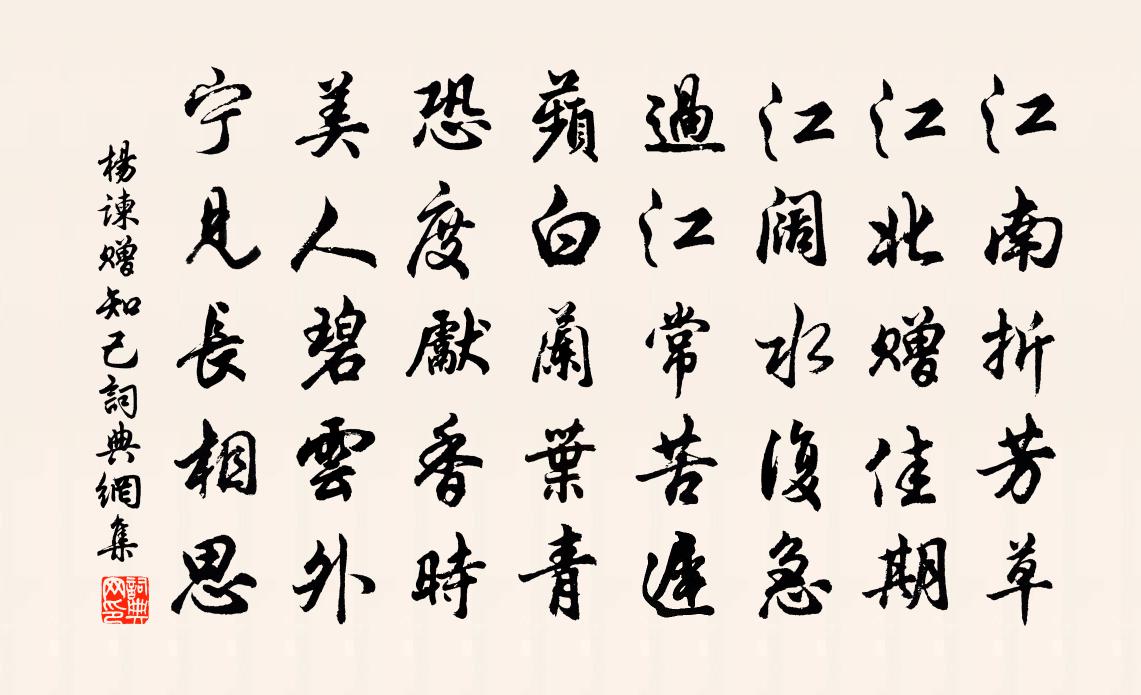 江南折芳草
江北赠佳期
江阔水復急
過江常苦遲
蘋白蘭葉青
恐度獻香時
美人碧雲外
宁見長相思
楊諫赠知己詞典網集
詞典网印